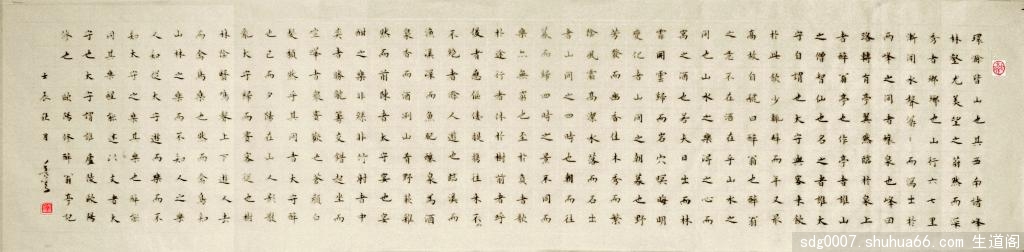 環滁皆山也其西南諸峰
林壑尤美望之蔚然而深
秀者瑯琊也山行六七里
漸聞水聲潺潺而瀉出於
兩峰之間者釀泉也峰回
路轉有亭翼然臨於泉上
者醉翁亭也作亭者誰山
之僧智仙也名之者誰太
守自謂也太守與客來飲
於此飲少輒醉而年又最
高故自號曰醉翁也醉翁
之意不在酒在乎山水之
間也山水之樂得之心而
寓之酒也若夫日出而林
霏開雲歸而岩穴暝晦明
變化者山間之朝暮也野
芳發而幽香佳木秀而繁
陰風霜高潔水落而石出
者山間之四時也朝而往
暮而歸四時之景不同而
樂亦無窮也至於負者歌
於途行者休於樹前者呼
後者應傴僂提攜往來不
絕者滁人遊也臨溪而
漁溪深而魚肥釀泉為酒
泉香而酒洌山肴野蔌雜
然而前陳者太守宴也宴
酣之樂非絲非竹射者中
奕者勝觥籌交錯起坐而
諠嘩者眾賓歡也蒼顏白
髮頹然乎其間者太守醉
也已而夕陽在山人影散
亂太守歸而賓客從也樹
林陰翳鳴聲上下遊人去
而禽鳥樂也然而禽鳥知
山林之樂而不知人之樂
人知從太守遊而樂而不
知太守之樂其樂也醉能
同其樂醒能述以文者太
守也太守謂誰廬陵歐陽
修也 歐陽修醉翁亭記
壬辰秋月
sdg0007.shuhua66.com 生道阁